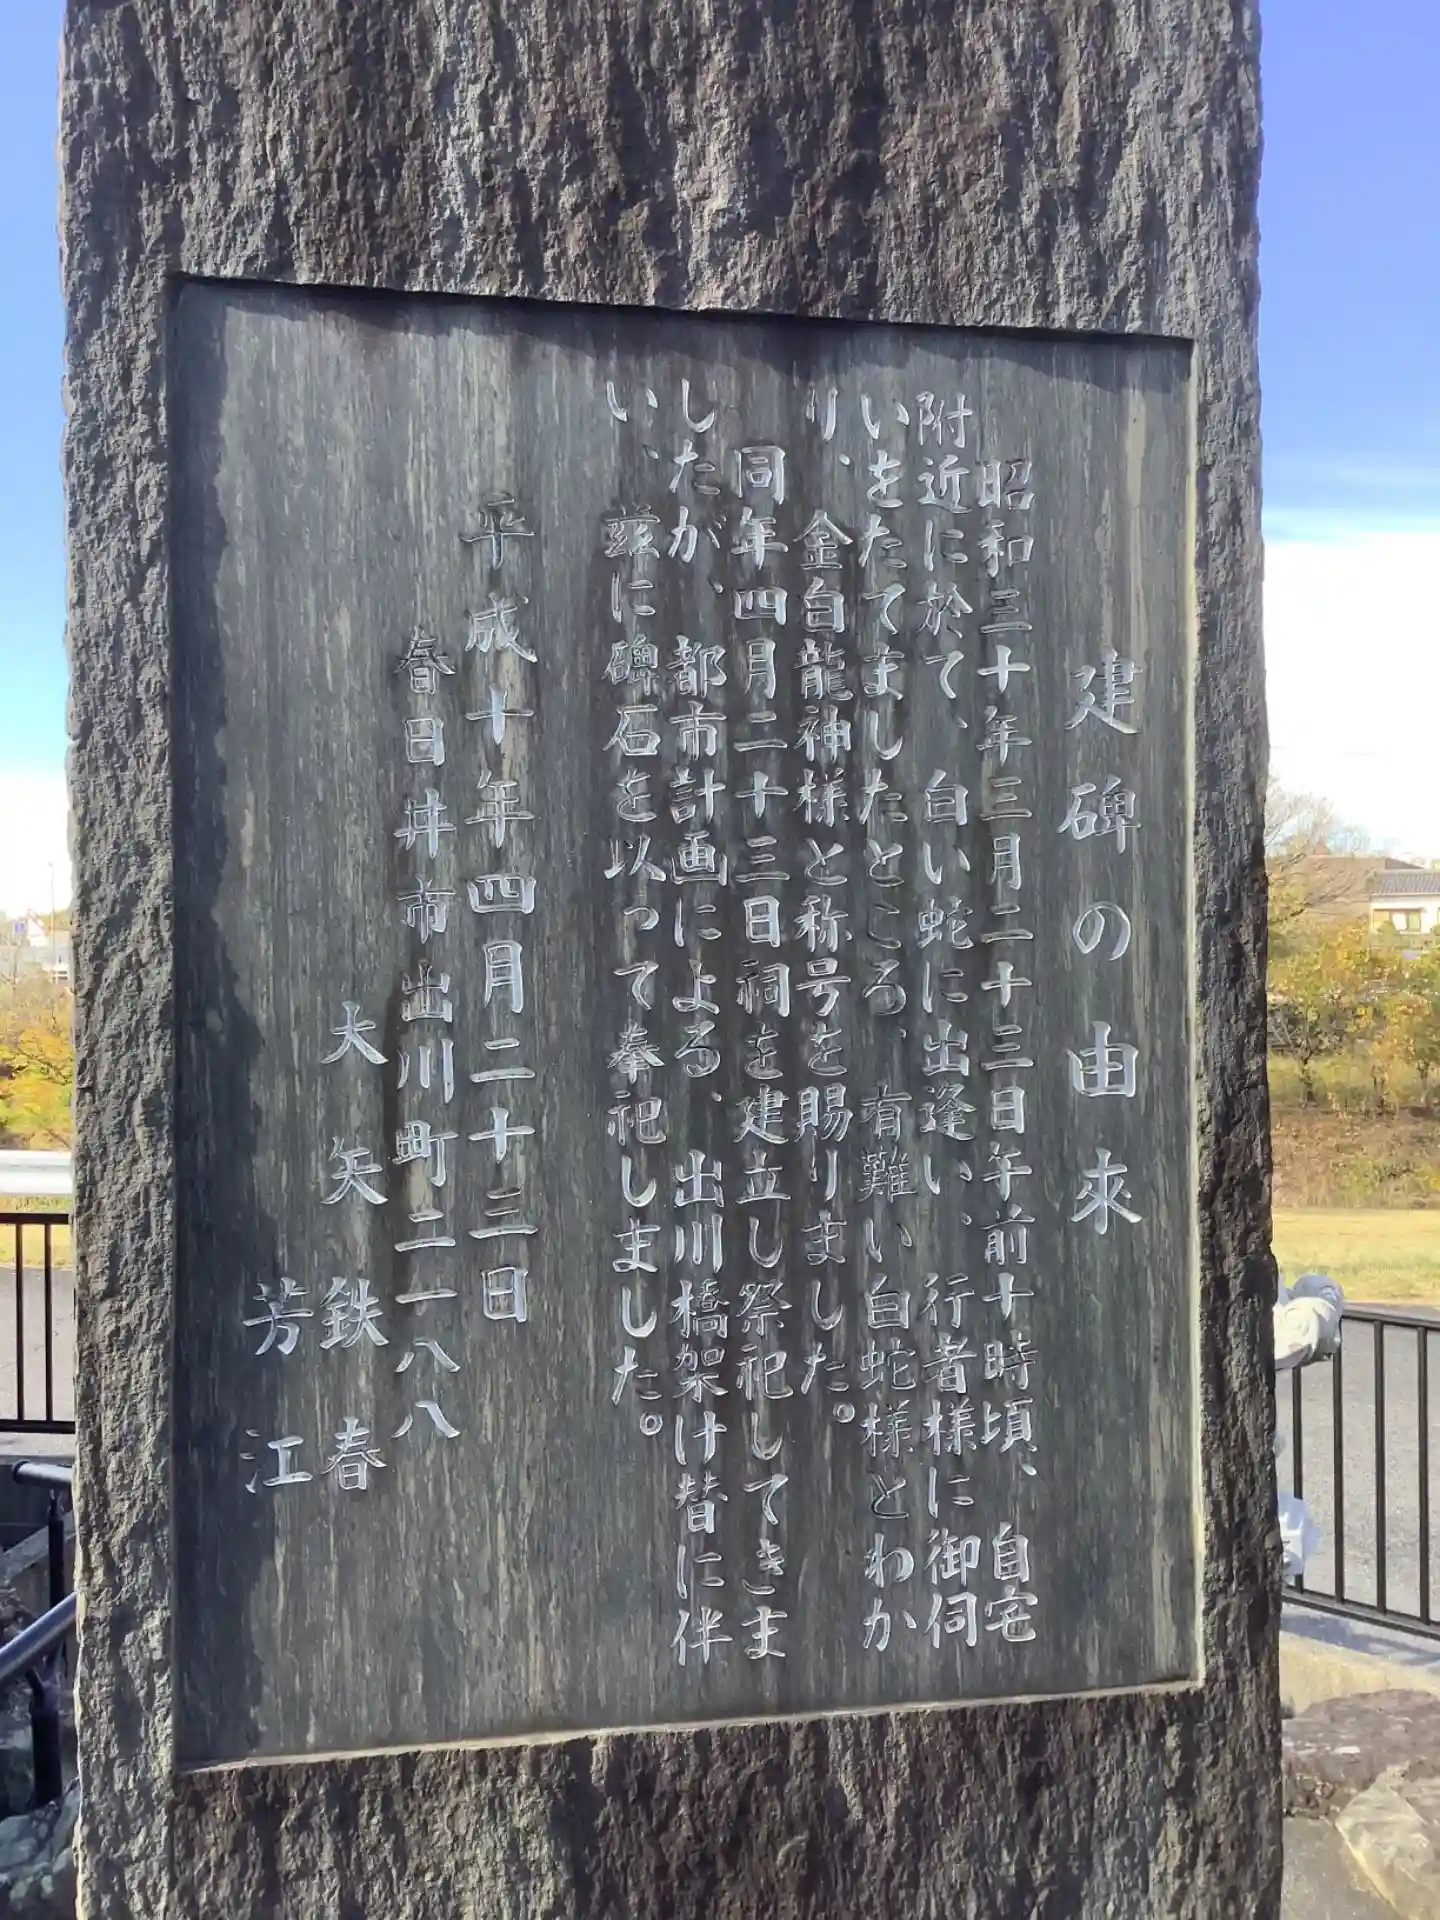 建碑の由來
昭和三十年三月二十三日午前十時頃、自宅
附近に於て、白い蛇に出逢い、行者様に御伺
いをたてましたところ、有難い白蛇様とわか
り、金白龍神様と称号を賜りました。
同年四月二十三日祠を建立し祭祀してきま
したが、都市計画による、出川橋架け替に伴
い、茲に碑石を以って奉祀しました。
平成十年四月二十三日
春日井市出川町二一八八
大矢鉄春
芳江